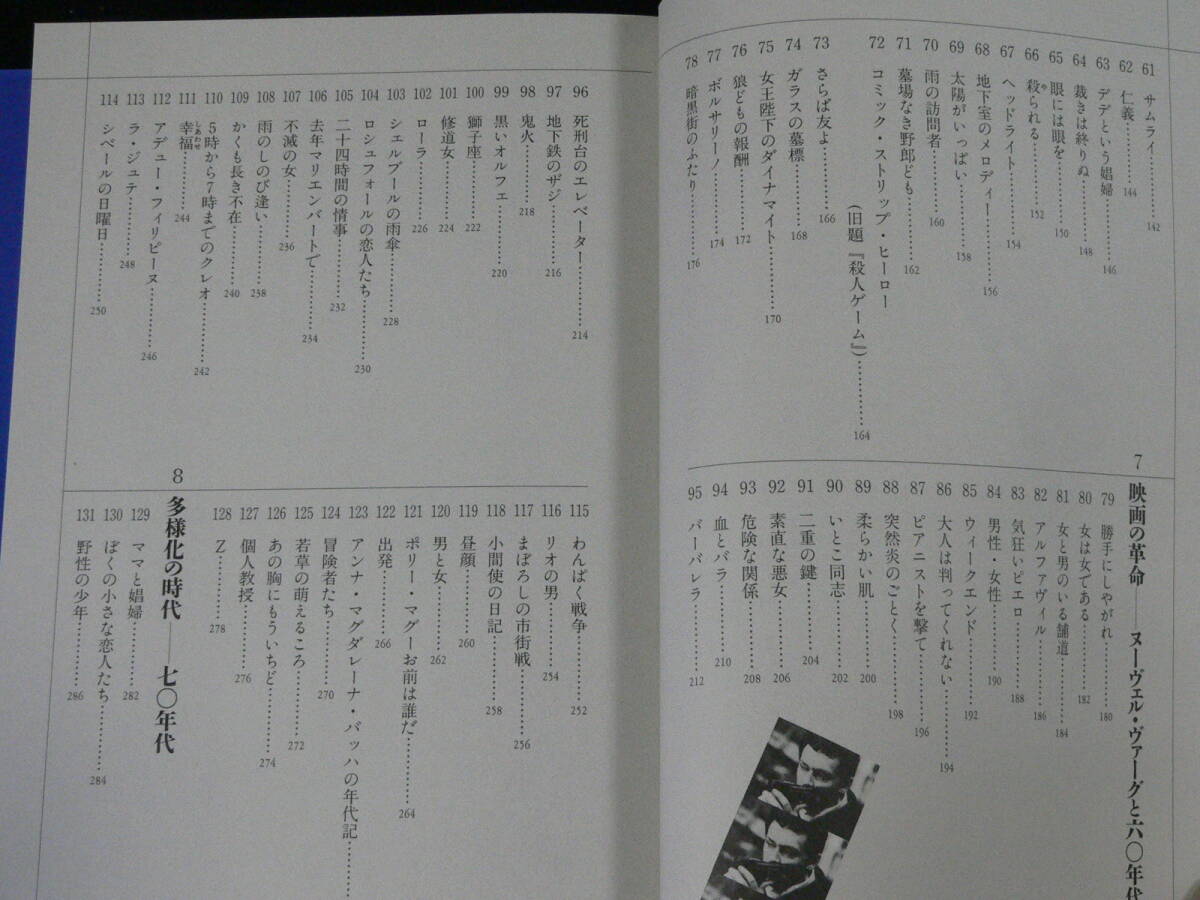 61 サムライ……142
62 仁義……144
63 デデという娼婦……146
64 裁きは終りぬ……148
65 眼には眼を……150
66 殺られる……152
67 ヘッドライト……154
68 地下室のメロディー……156
69 太陽がいっぱい……158
70 雨の訪問者……160
71 墓場なき野郎ども……162
72 コミック・ストリップ・ヒーロー
(旧題『殺人ゲーム』)……164
73 さらば友よ……166
74 ガラスの墓標……168
75 女王陛下のダイナマイト……170
76 狼どもの報酬……172
77 ボルサリーノ……174
78 暗黒街のふたり……176
7 映画の革命——ヌーヴェル・ヴァーグと六〇年代
79 勝手にしやがれ……180
80 女は女である……182
81 女と男のいる舗道……184
82 アルファヴィル……186
83 気狂いピエロ……188
84 男性・女性……190
85 ウィークエンド……192
86 大人は判ってくれない……194
87 ピアニストを撃て……196
88 突然炎のごとく……198
89 柔らかい肌……200
90 いとこ同志……202
91 二重の鍵……204
92 素直な悪女……206
93 危険な関係……208
94 血とバラ……210
95 バーバレラ……212
96 死刑台のエレベーター……214
97 地下鉄のザジ……216
98 鬼火……218
99 黒いオルフェ……220
100 獅子座……222
101 修道女……224
102 ローラ……226
103 シェルブールの雨傘……228
104 ロシュフォールの恋人たち……230
105 二十四時間の情事……232
106 去年マリエンバートで……234
107 不滅の女……236
108 雨のしのび逢い……238
109 かくも長き不在……240
110 5時から7時までのクレオ……242
111 幸福……244
しあわせ
112 アデュー・フィリピーヌ……246
113 ラ・ジュテ……248
114 シベールの日曜日……250
115 わんぱく戦争……252
116 リオの男……254
117 まぼろしの市街戦……256
118 小間使の日記……258
119 昼顔……260
120 男と女……262
121 ポリー・マグーお前は誰だ……264
122 出発……266
123 アンナ・マグダレーナ・バッハの年代記……
124 冒険者たち……270
125 若草の萌えるころ……272
126 あの胸にもういちど……274
127 個人教授……276
128 Z……278
8 多様化の時代——七〇年代
129 ママと娼婦……282
130 ぼくの小さな恋人たち……284
131 野性の少年……286